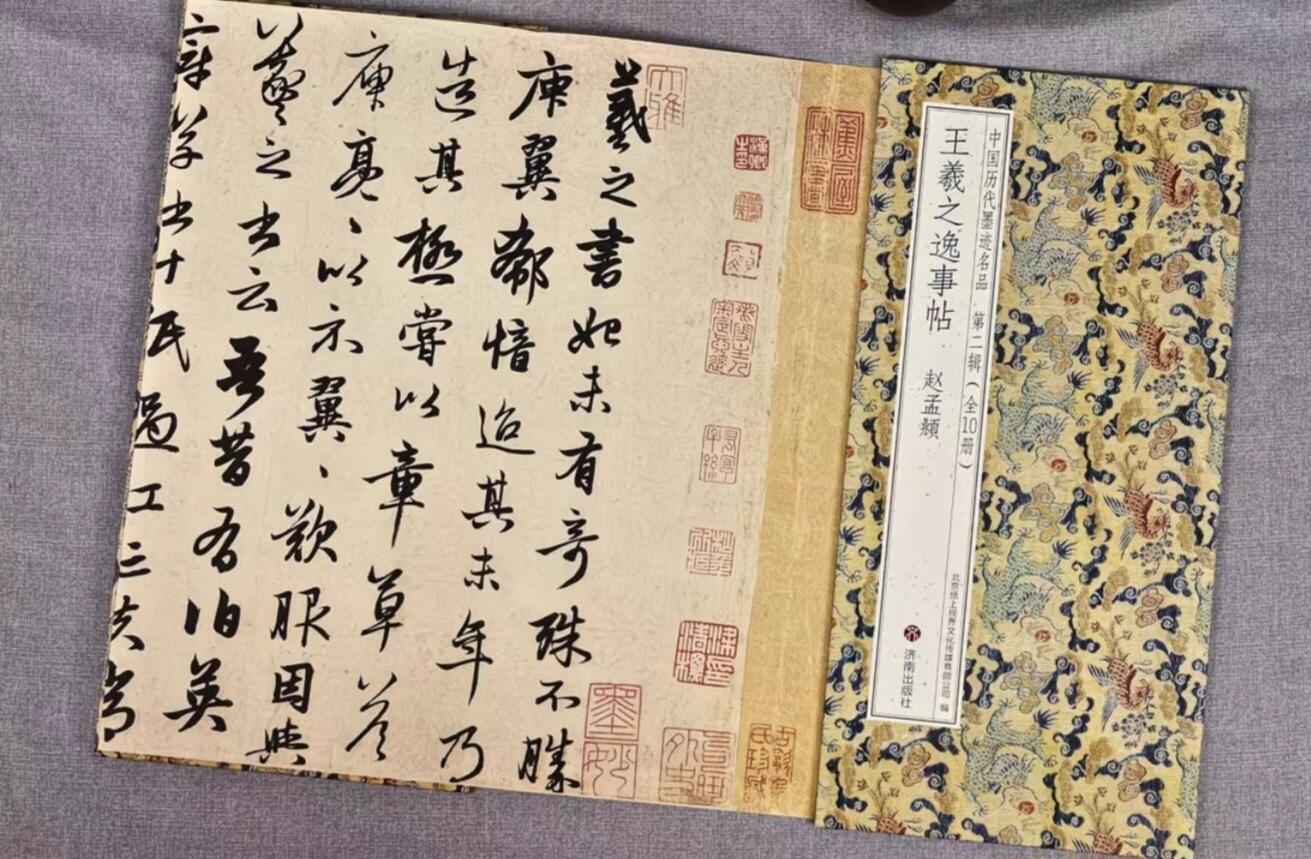 中国历代墨迹名品 第二辑(全10册)
王羲之逸事帖 赵孟頫
北京纸上视界文化传媒有限公司 编
济南出版社
大雅
羲之書始未有奇殊不勝
庾翼郗愔迨其末年乃
造其極嘗以章草荅
庾亮〻以示翼〻歎服因與
羲之書云吾昔有伯英
章草書十帋過江亡失常
墨妙